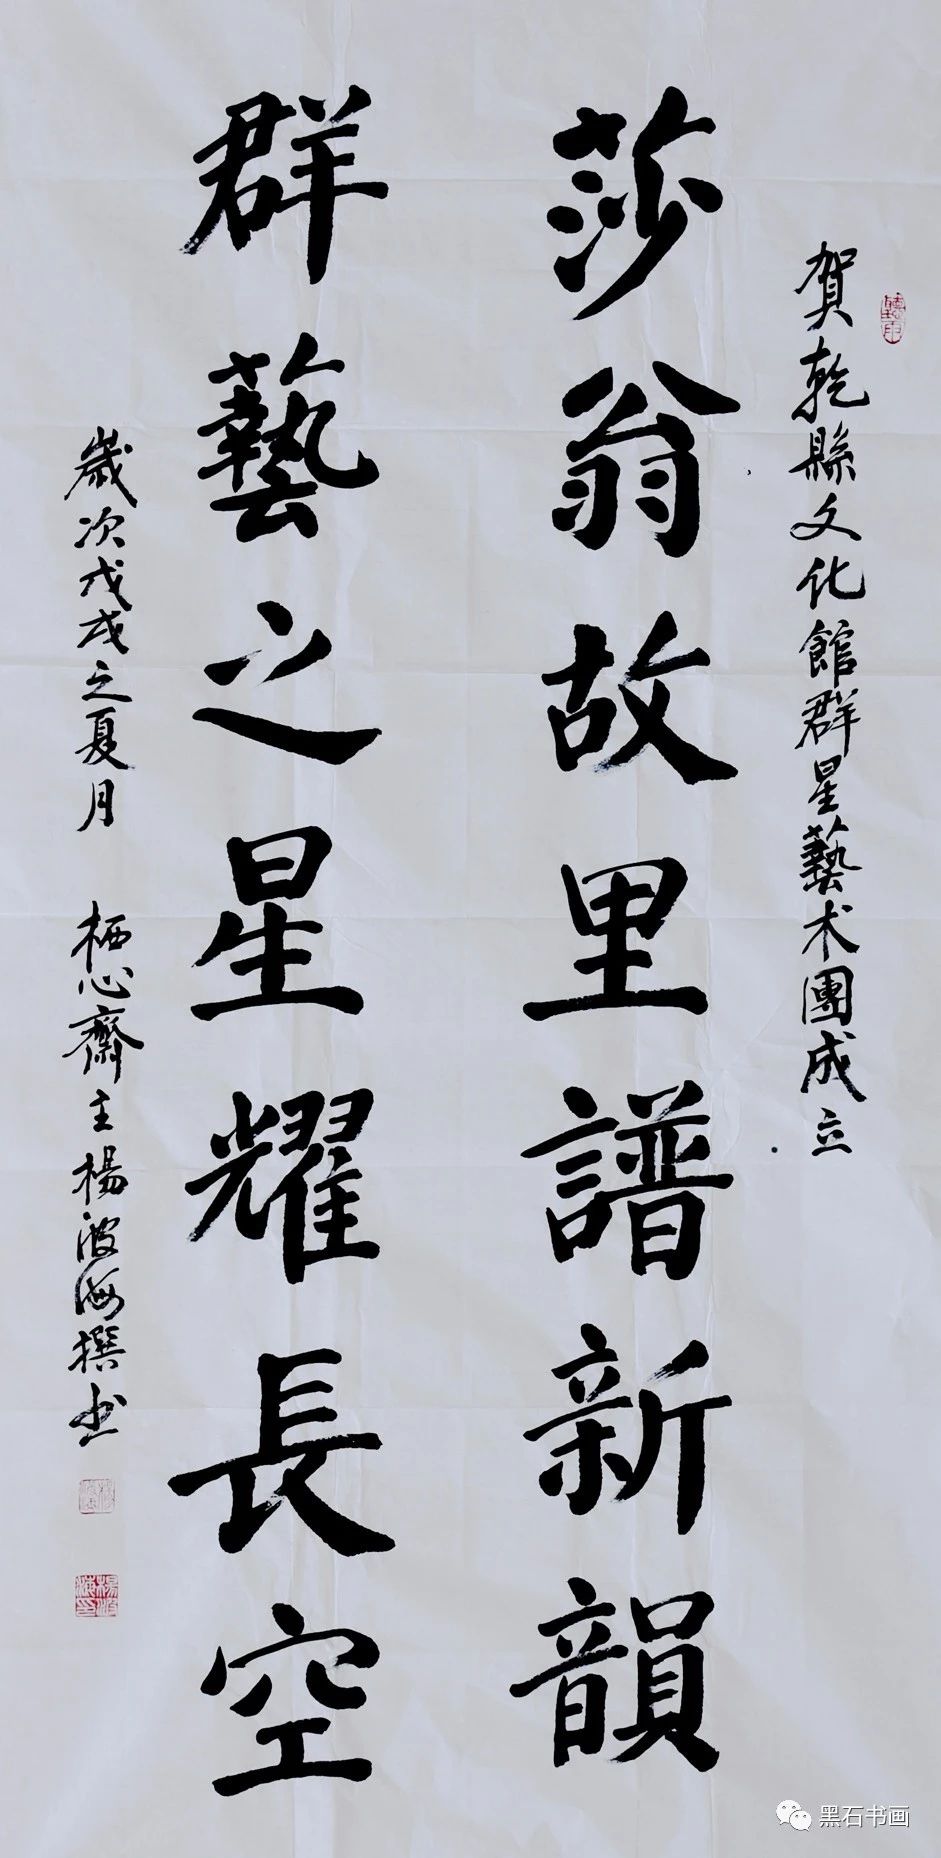 賀乾縣文化館群星藝术團成立
莎翁故里譜新韻
群藝之星耀長空
歲次戊戌之夏月 栖心齋主楊波海撰书
黑石书画